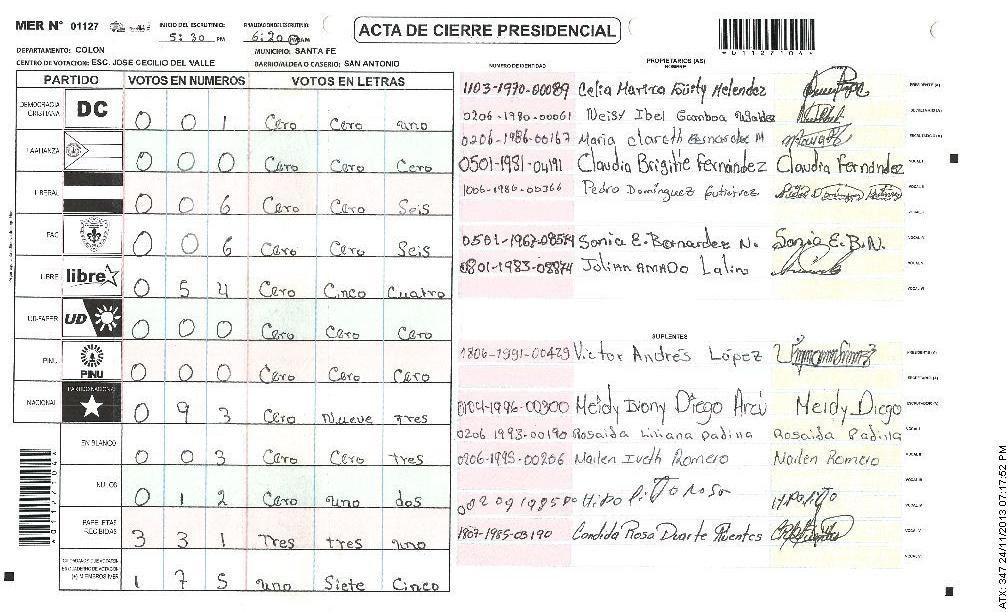 MER N° 01127
INICIO DEL ESCRUTINIO: 5:30 PM
FINALIZACION DEL ESCRUTINIO: 6:20
ACTA DE CIERRE PRESIDENCIAL
*01127104*
DEPARTAMENTO: COLON
MUNICIPIO: SANTA FE
CENTRO DE VOTACION: ESC. JOSE CECILIO DEL VALLE
BARRIO/ALDEA O CASERIO: SAN ANTONIO
PARTIDO VOTOS EN NUMEROS VOTOS EN LETRAS
DEMOCRACIA CRISTIANA DC 0 0 1 Cero Cero uno
LA ALIANZA 0 0 0 Cero Cero Cero
LIBERAL 0 0 6 Cero Cero Seis
PAC 0 0 6 Cero Cero Seis
LIBRE libre 0 5 4 Cero Cinco Cuatro
UD-FAPER UD 0 0 0 Cero Cero Cero
PINU PINU 0 0 0 Cero Cero Cero
NACIONAL PARTIDO NACIONAL 0 9 3 Cero Nueve tres
EN BLANCO 0 0 3 Cero Cero tres
NULOS 0 1 2 Cero uno dos
PAPELETAS RECIBIDAS 3 3 1 Tres tres uno
(+) MIEMBROS MER 1 7 5 uno Siete Cinco
PROPIETARIOS (AS)
NUMERO DE IDENTIDAD NOMBRE
1103-1970-00089 Celia Maritza Melendez PRESIDENTE (A)
0206-1980-00061 Neisy Ibel Gamboa SECRETARIO (A)
0206-1986-00167 Maria Clareth Bernardez M ESCRUTADOR (A)
0501-1981-04191 Claudia Brigitte Fernández Claudia Fernández VOCAL I
1006-1986-00366 Pedro Domínguez Gutiérrez VOCAL II
0501-1967-08514 Sonia E. Bernardez N. Sonia E.B.N. VOCAL IV
0801-1983-08874 Julian AMADO Lalin VOCAL V
VOCAL VI
SUPLENTES
1806-1991-00429 Victor Andrés López PRESIDENTE (A)
SECRETARIO (A)
0104-1996-00300 Meidy Ivony Diego Arzú Meidy Diego ESCRUTADOR (A)
0206 1993-00190 Rosaida Liliana Padilla Rosaida Padilla VOCAL I
0206-1995-00206 Mailen Iveth Romero Mailen Romero VOCAL II
VOCAL III
1807-1985-03190 Candida Rosa Duarte Puentes
*01127104*
ATX: 347 24/11/2013 07:17:52 PM